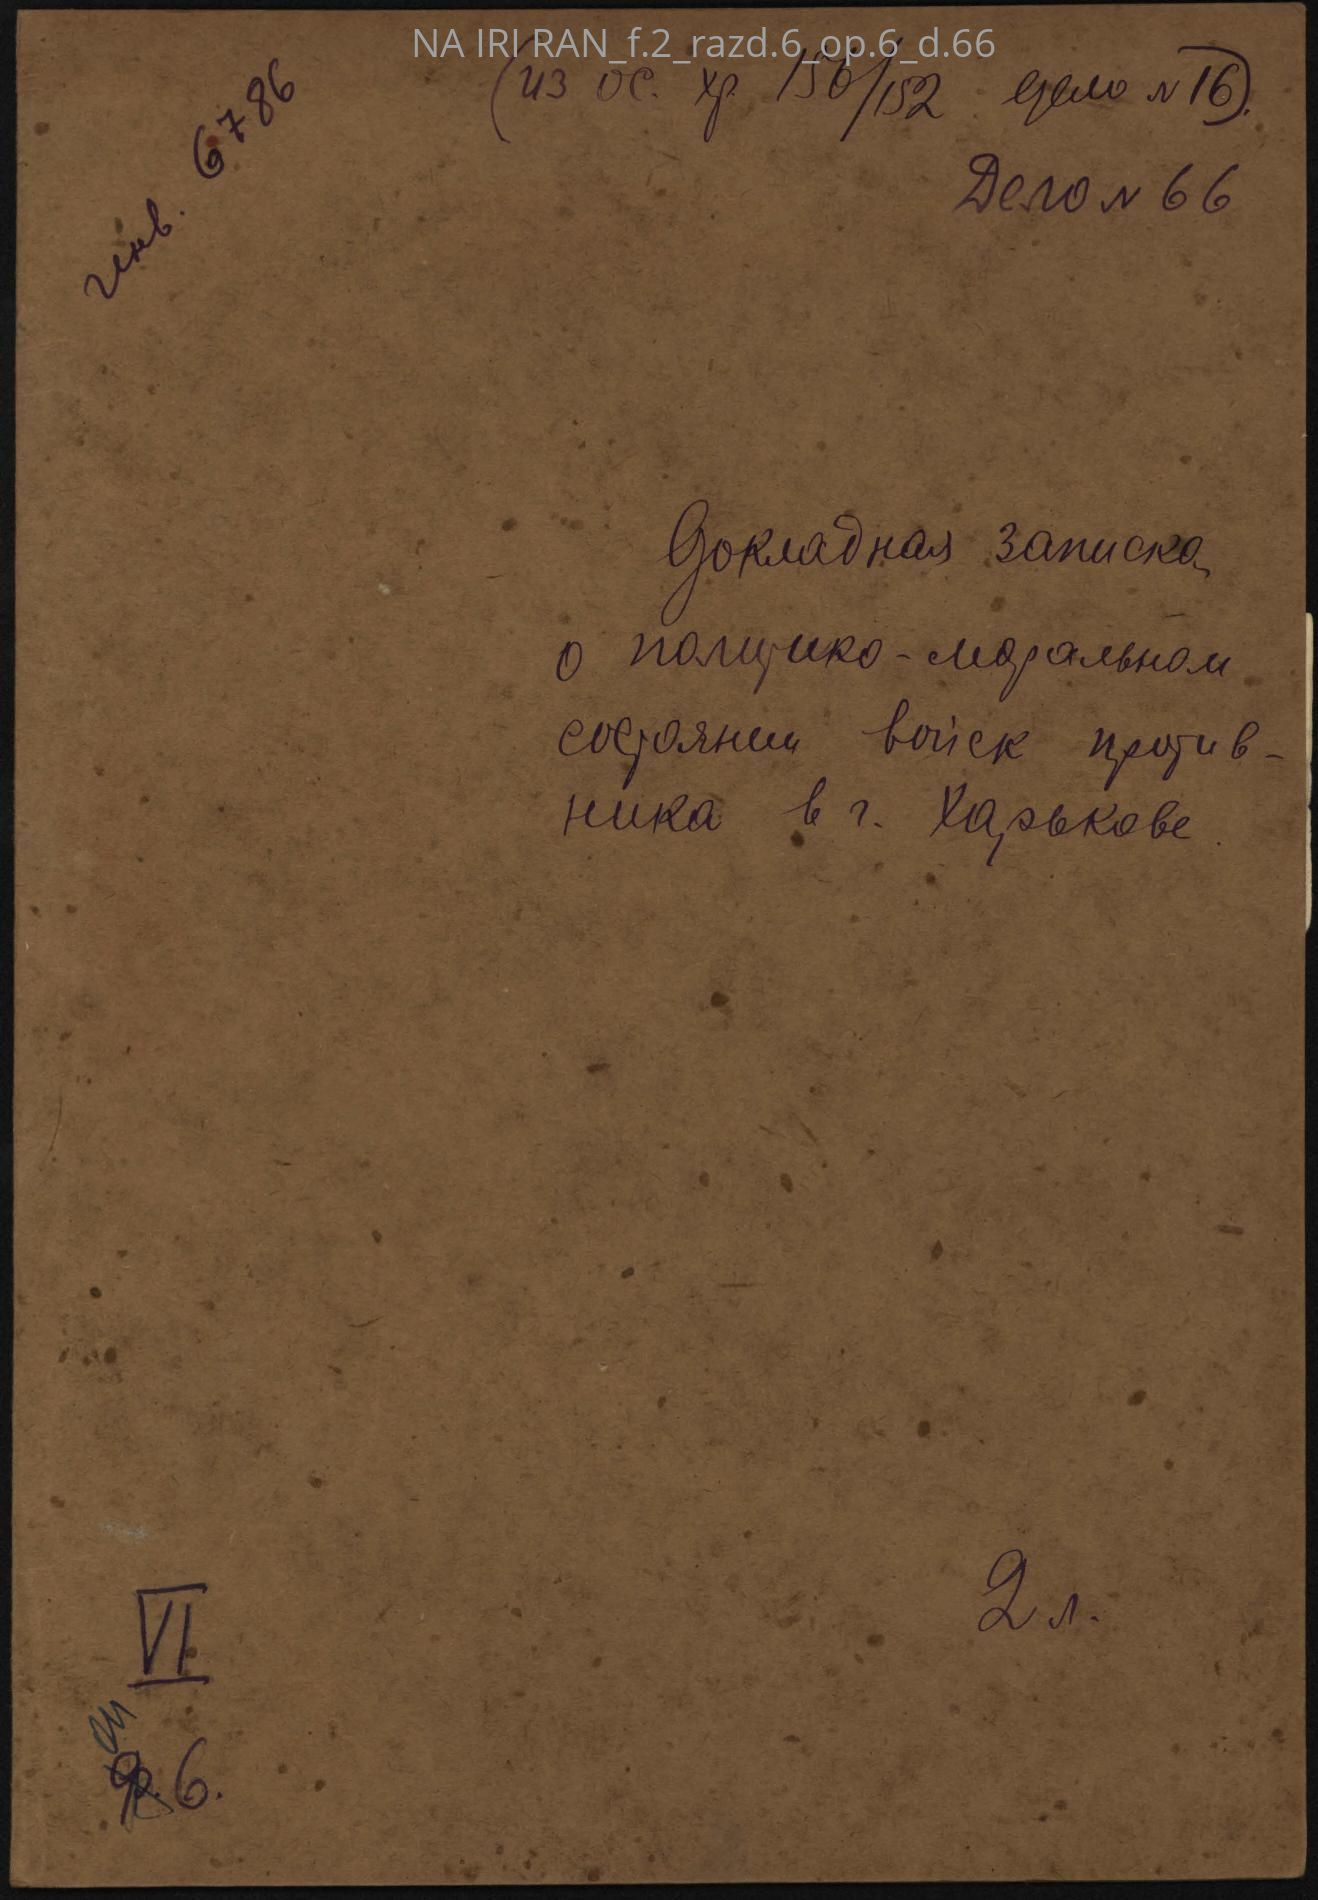 NA IRI RAN_f.2_razd.6_op.6_d.66
(из ос. хр. 156/152 дело № 16).
инв. 6786
Дело № 66
Докладная записка
о политико-моральном
состоянии войск против-
ника в г. Харькове.
2 л.
VI
6.